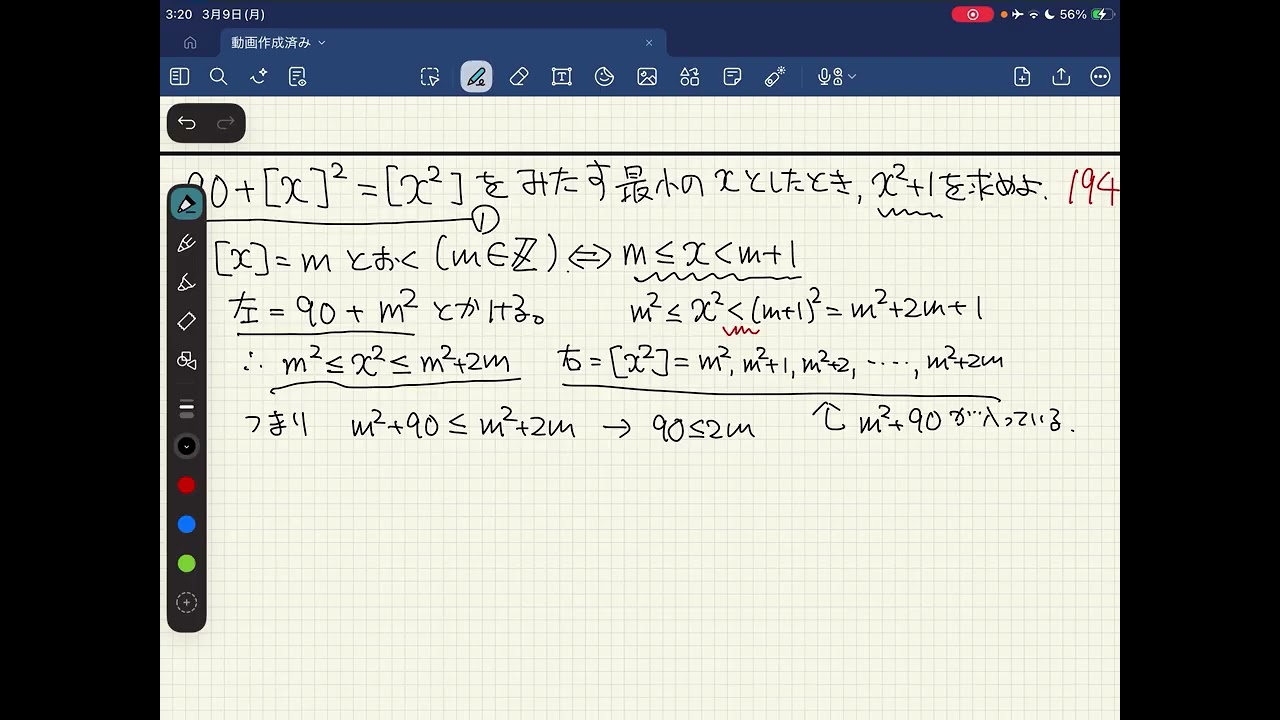 3:20 3月9日(月)
56%
動画作成済み
90+[x]²=[x²]をみたす最小のxとしたとき, x²+1を求めよ. 194
①
[x]=mとおく(m∈ℤ). ⇔ m≤x<m+1
左=90+m²とかける。 m²≤x²<(m+1)²=m²+2m+1
∴ m²≤x²≤m²+2m 右=[x²]=m², m²+1, m²+2, ……, m²+2m
つまり m²+90≤m²+2m → 90≤2m ↑ m²+90が入っている.